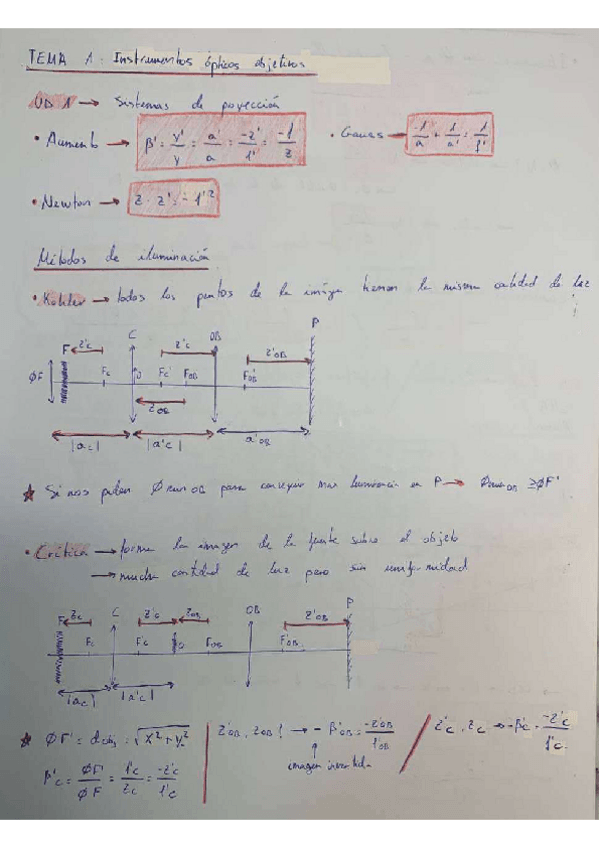 TEMA 1: Instrumentos ópticos objetivos
UD 1 → Sistemas de poyección
• Aumento → β' = y'/y = a'/a = -z'/f' = -f/z
• Gauss → -1/a + 1/a' = 1/f'
• Newton → z · z' = - f'²
Métodos de iluminación
• Kohler → todos los puntos de la imágen tienen la misma cantidad de luz
P
C OB
F z'c z'c z'OB
ØF Fc O Fc' FOB FOB'
zOB
|ac| |a'c| a'OB
★ Si nos piden Ø OB para conseguir max luminancia en P → ≥ØF'
• Crítica → forma la imagen de la fuente sobre el objeto
→ mucha cantidad de luz pero sin uniformidad
F zc C z'c zOB OB z'OB P
Fc F'c O FOB F'OB
|ac| |a'c|
★ ØF' = = √x²+y²
z'OB, zOB! → - β'OB = -z'OB/f'OB
z'c, zc → -βc = -z'c/f'c
imagen invertida
β'c = ØF'/ØF = f'c/zc = -z'c/f'c